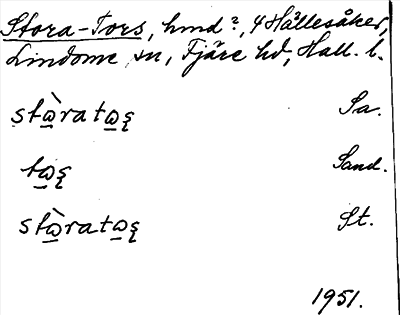 Stora-Tors, hmd?, 4 Hällesåker,
Lindome sn, Fjäre hd, Hall. l.
stὼ̲ratω̲ȿ Sa.
tω̲ȿ Sand.
stὼ̲ratω̲ȿ St.
1951.